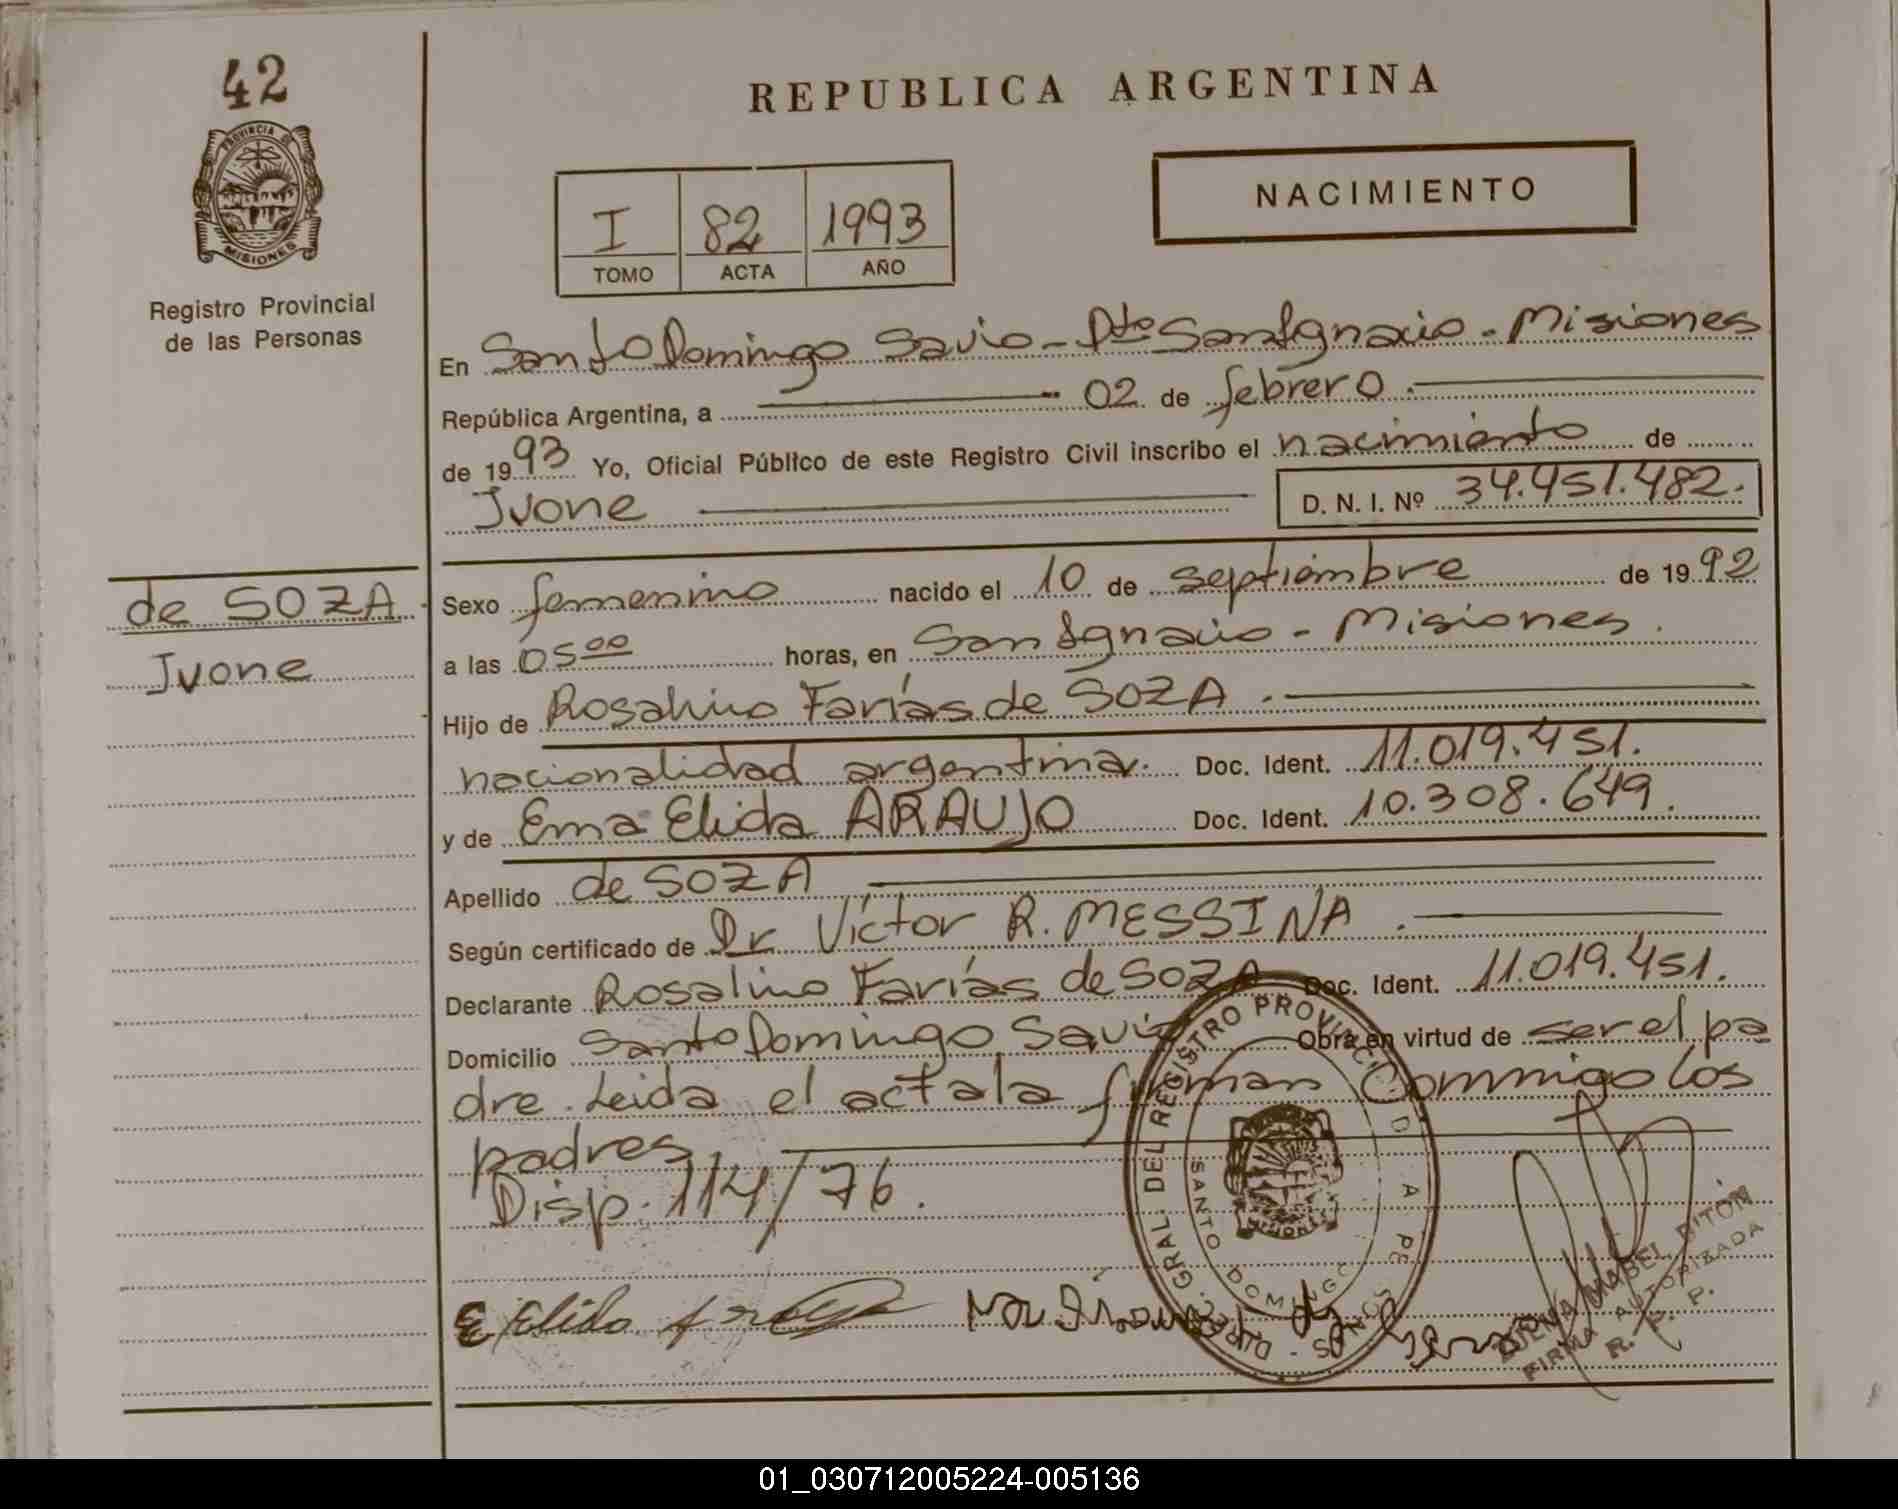 42
PROVINCIA DE
MISIONES
Registro Provincial
de las Personas
REPUBLICA ARGENTINA
NACIMIENTO
I 82 1993
TOMO ACTA AÑO
En Santo Domingo Savio - Dto San Ignacio - Misiones
República Argentina, a 02 de febrero.
de 1993 Yo, Oficial Público de este Registro Civil inscribo el nacimiento de
Ivone D. N. I. Nº 34.451.482.
de SOZA
Ivone
Sexo femenino nacido el 10 de septiembre de 1992
a las 05 00 horas, en San Ignacio - Misiones.
Hijo de Rosalino Farías de SOZA.
nacionalidad argentina. Doc. Ident. 11.019.451.
y de Ema Elida ARAUJO Doc. Ident. 10.308.649.
Apellido de SOZA
Según certificado de Dr Víctor R. MESSINA.
Declarante Rosalino Farías de SOZA Doc. Ident. 11.019.451.
Domicilio Santo Domingo Savio Obra en virtud de ser el pa
dre. Leida el acta la firman Conmigo los
padres
Disp. 114/76.
E Elida
DIREC. GRAL. DEL REGISTRO PROVINCIAL
SANTO DOMINGO
MABEL
FIRMA AUTORIZADA
R. P. P.
01_030712005224-005136